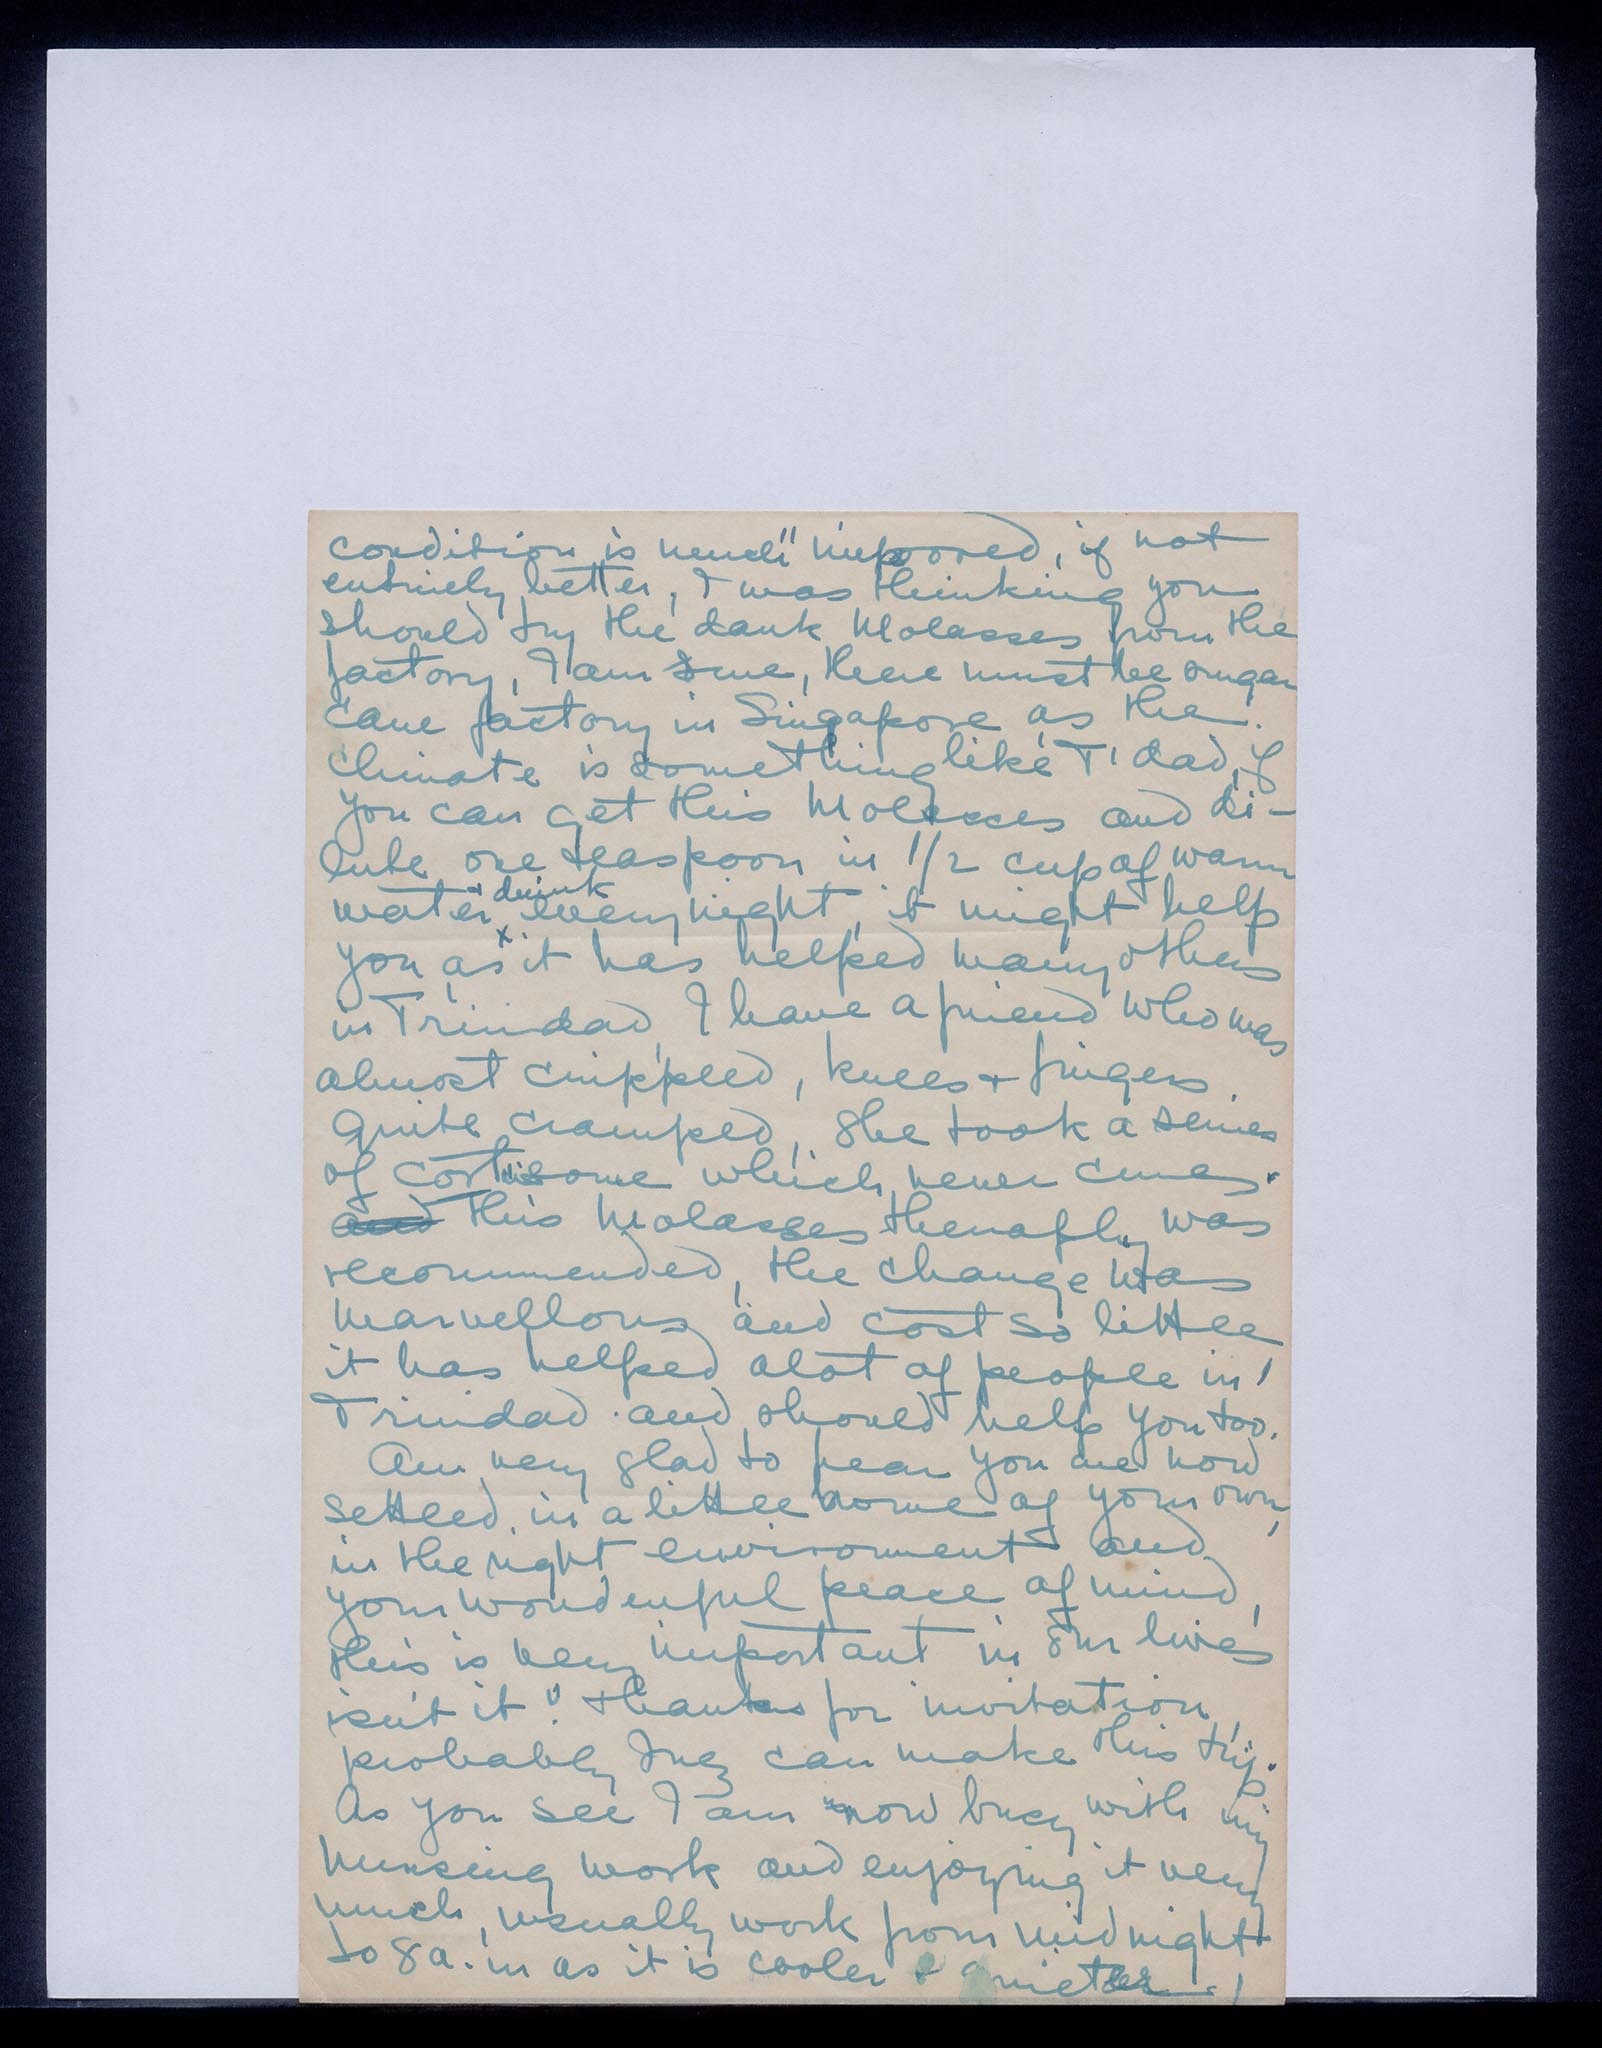 condition is much improved, if not
entirely better, I was thinking you
should try the dark Molasses from the
factory, I am sure, there must be sugar
cane factory in Singapore as the
climate is something like T'dad, if
you can get this Molasses and di-
lute one teaspoon in 1/2 cup of warm
water + drink every night, it might help
you as it has helped many others
in Trinidad, I have a friend who was
almost crippled, knees + fingers
quite cramped, she took a series
of cortisone which never cures.
and this Molasses therapy was
recommended, the change was
marvellous and cost so little
it has helped alot of people in
Trinidad and should help you too.
Am very glad to hear you are now
settled in a little home of your own,
in the right environment and
your wonderful peace of mind,
this is very important in our lives
isn't it! thanks for invitation,
probably Inez can make this trip.
As you see I am now busy with my
nursing work and enjoying it very
much, usually work from midnight
to 8 a.m as it is cooler + quieter!